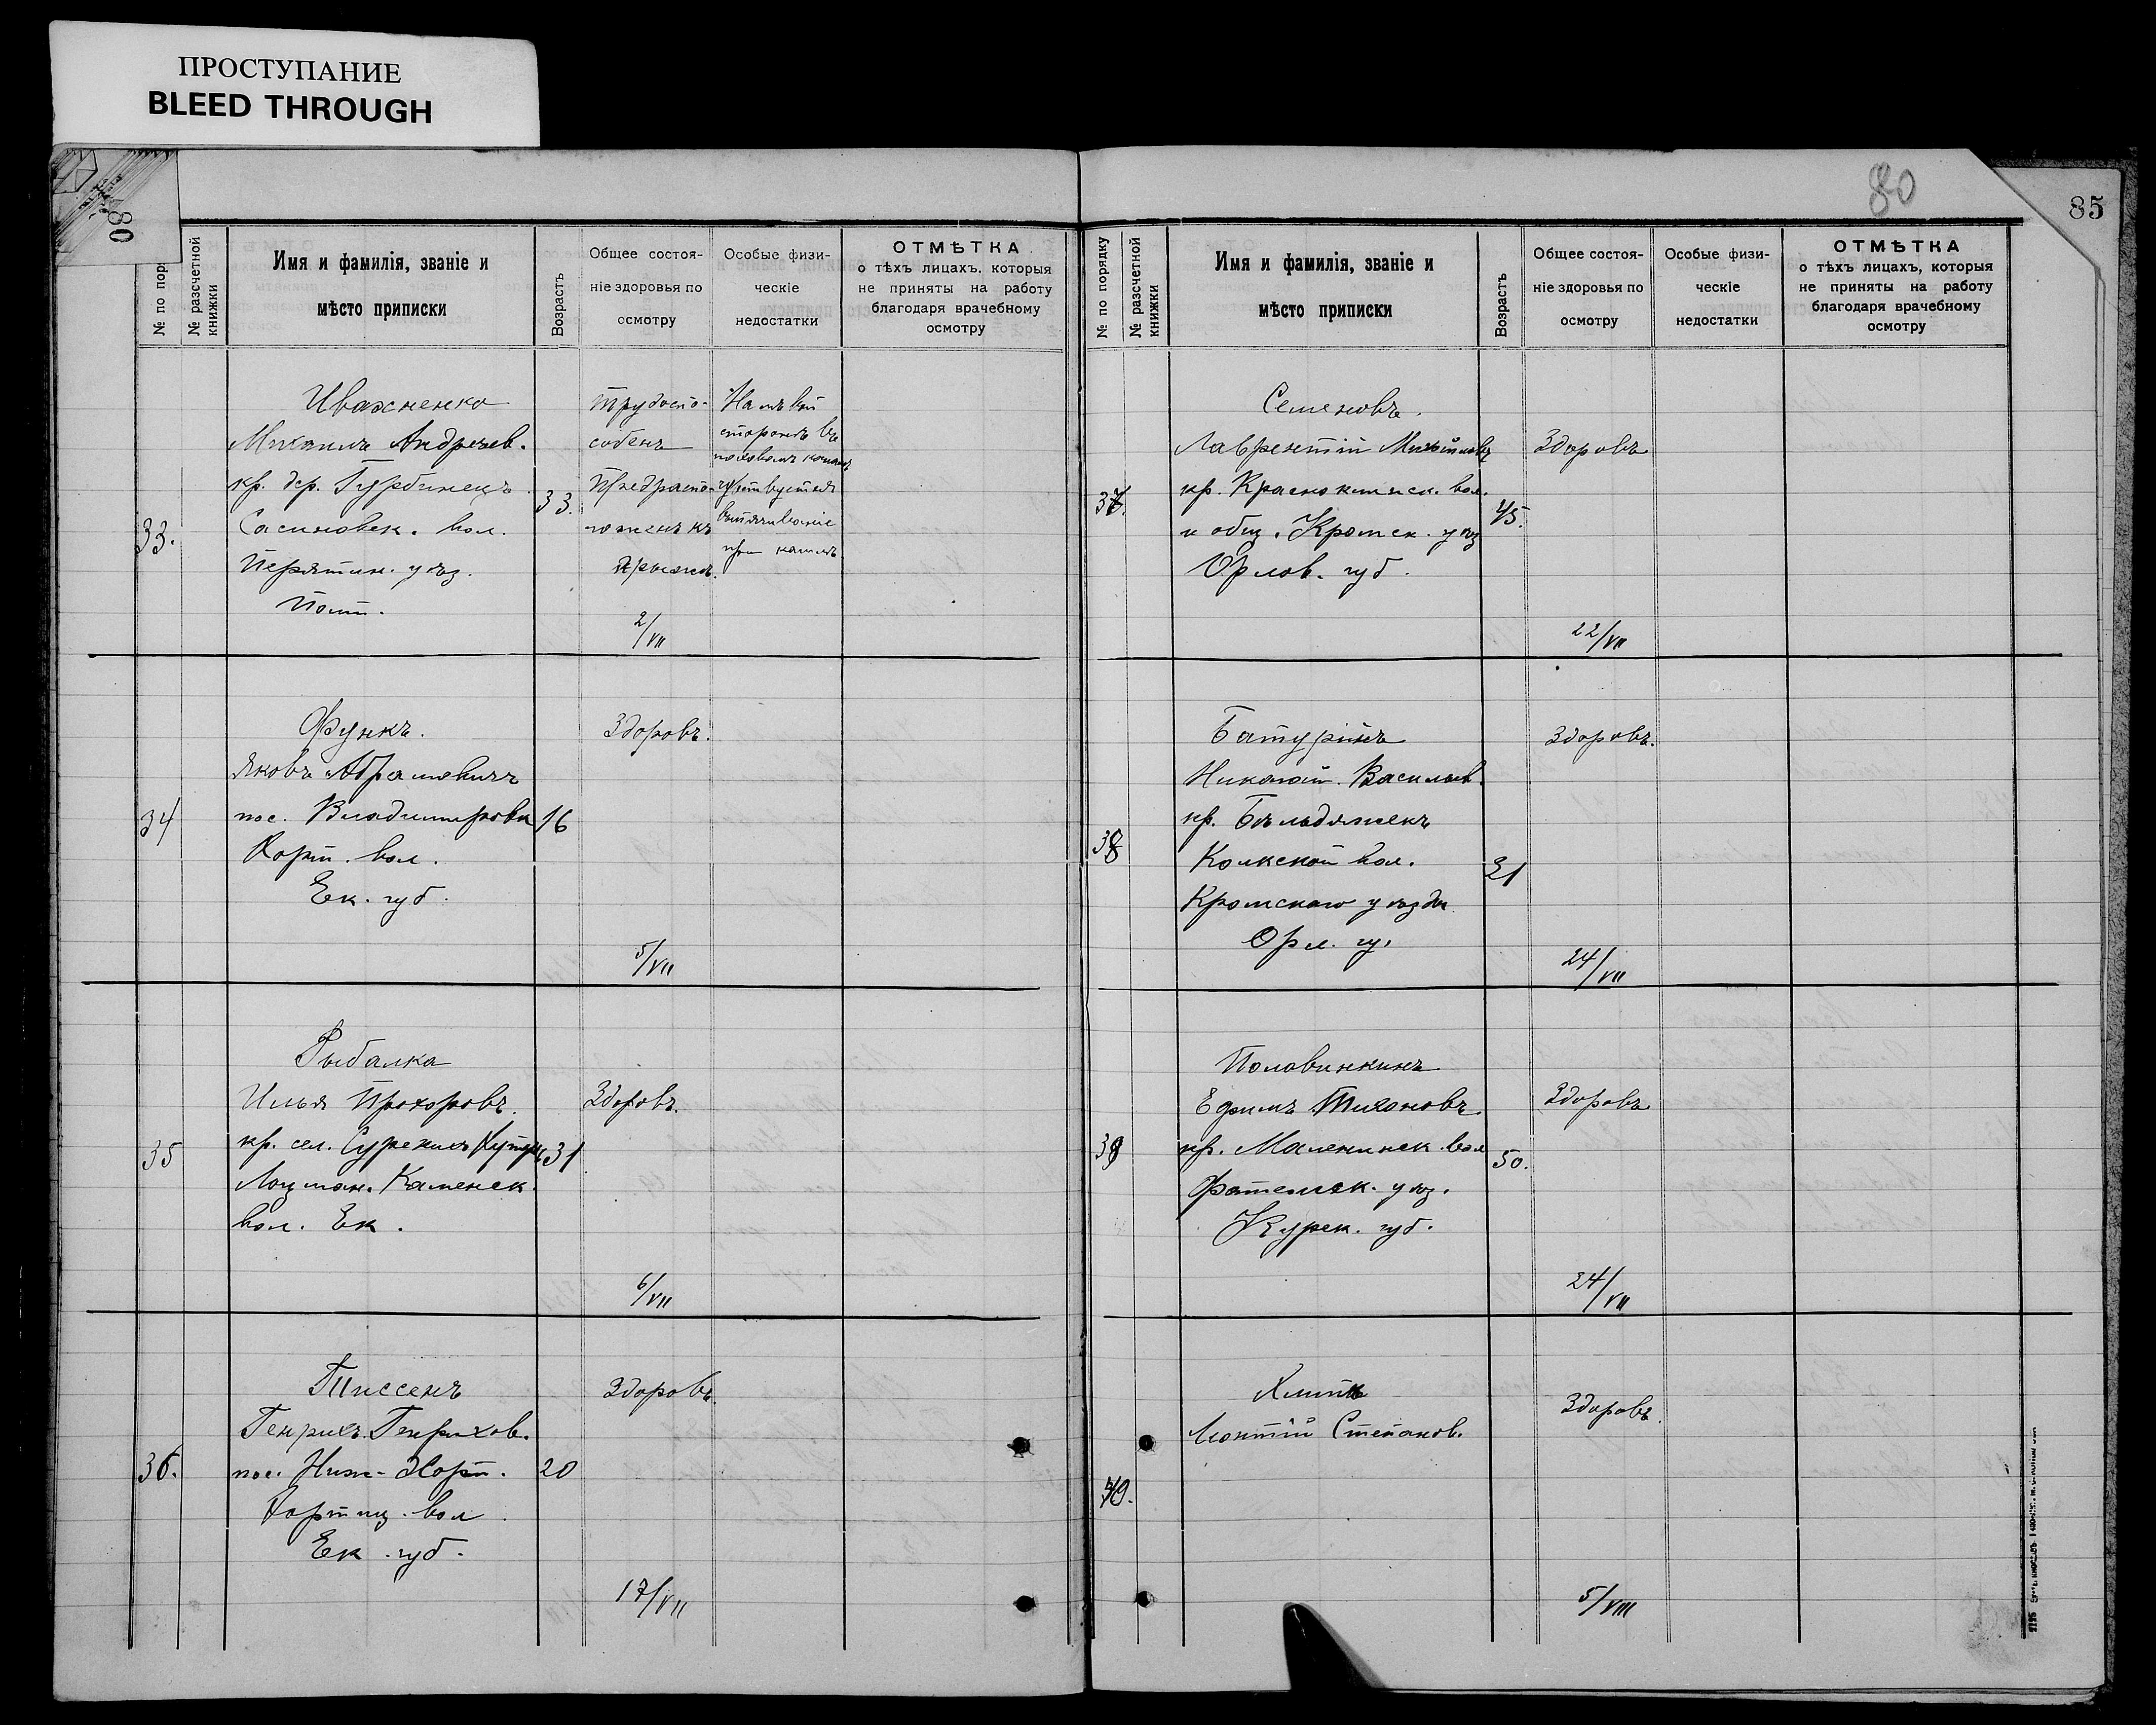 ПРОСТУПАНИЕ
BLEED THROUGH
80
№ по поря
№ разсчетной книжки
Имя и фамилія, званіе и
мѣсто приписки
Возрастъ
Общее состоя-
ніе здоровья по
осмотру
Особые физи-
ческіе
недостатки
ОТМѢТКА
о тѣхъ лицахъ, которыя
не приняты на работу
благодаря врачебному
осмотру
33.
Ивахненко
Михаилъ Андреев.
кр. дер. Гурбинецъ
Сасиновск. вол.
Пирятин. уѣз.
Полт.
33.
Трудоспо-
собенъ
Предраспо-
ложенъ къ
грыжѣ.
2/VII
На лѣвой
сторонѣ въ
паховомъ каналѣ
чувствуется
выпячиваніе
при кашлѣ
34
Функъ.
Яковъ Абрамовичъ
пос. Владимировка
Хорт. вол.
Ек. губ.
16
Здоровъ.
5/VII
35
Рыбалка
Илья Прохоровъ.
кр. сел. Сурскихъ Хутор.
Лоцман. Каменск.
вол. Ек.
31
Здоровъ.
6/VII
36.
Тиссенъ
Генрихъ Генрихов.
пос. Ниж-Хорт.
Хортиц. вол
Ек. губ.
20
Здоровъ.
17/VII
80
85
№ по порядку
№ разсчетной книжки
Имя и фамилія, званіе и
мѣсто приписки
Возрастъ
Общее состоя-
ніе здоровья по
осмотру
Особые физи-
ческіе
недостатки
ОТМѢТКА
о тѣхъ лицахъ, которыя
не приняты на работу
благодаря врачебному
осмотру
37.
Семеновъ.
Лаврентій
кр. вол.
и общ. Кромск. уѣз
Орлов. губ.
45.
Здоровъ
22/VII
38
Батуринъ
Николай Васильев.
кр. Бѣльдяжекъ
вол.
Кромскаго уѣзда
Орл. гу.
21
Здоровъ.
24/VII
39
Половинкинъ
Ефимъ Тихоновъ.
кр. вол
Фатежск. уѣз.
Курск. губ.
50.
Здоровъ.
24/VII
40.
Леонтій Степанов.
Здоровъ.
5/VIII